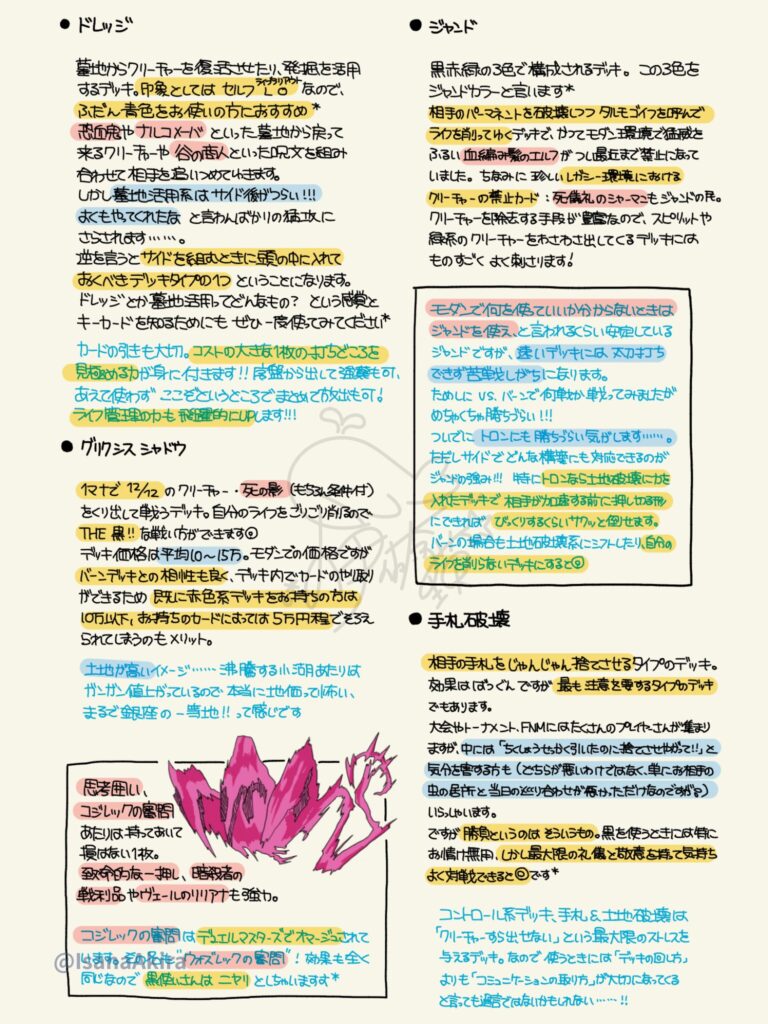 ● ドレッジ
墓地からクリーチャーを復活させたり、発掘を活用
するデッキ。印象としてはセルフLO(ライブラリアウト)なので、
ふだん青色をお使いの方におすすめ*
恐血鬼やナルコメーバといった墓地から戻って
来るクリーチャーや谷の商人といった呪文を組み
合わせて相手を追いつめていきます。
しかし墓地活用系はサイド後がつらい!!!
よくもやってくれたなと言わんばかりの猛攻に
さらされます……。
逆を言うとサイドを組むときに頭の中に入れて
おくべきデッキタイプの1つということになります。
ドレッジとか墓地活用ってどんなもの?という感覚と
キーカードを知るためにもぜひ一度使ってみてください*
カードの引きも大切。コストの大きな1枚の打ちどころを
見極める力が身に付きます!!序盤から出して速攻も可、
あえて使わずここぞというところでまとめて放出も可!
ライフ管理の力も飛躍的にUPします!!!
● グリクシスシャドウ
1マナで12/12のクリーチャー・死の影(もちろん条件付)
をくり出して戦うデッキ。自分のライフをごりごり削るので
THE 黒!!な戦い方ができます◎
デッキ価格は平均10〜15万。モダンでの価格ですが
バーンデッキとの相性も良く、デッキ内でカードのやり取り
ができるため既に赤色系デッキをお持ちの方は
10万以下、お持ちのカードによっては5万円程でそろえ
られてしまうのもメリット。
土地が高いイメージ……沸騰する小湖あたりは
ガンガン値上がっているので本当に地価って怖い、
まるで銀座の一等地!!って感じです
思考囲い、
コジレックの審問
あたりは持っておいて
損はない1枚。
致命的な一押し、暗殺者の
戦利品やヴェールのリリアナも強力。
コジレックの審問はデュエルマスターズでオマージュされて
います。その名も"ウォズレックの審問"!効果も全く
同じなので黒使いさんはニヤリとしちゃいますす*
@IsanaAkira
● ジャンド
黒赤緑の3色で構成されるデッキ。この3色を
ジャンドカラーと言います*
相手のパーマネントを破壊しつつタルモゴイフを呼んで
ライフを削ってゆくデッキで、かつてモダン環境で猛威を
ふるい血編み髪のエルフがつい最近まで禁止になって
いました。ちなみに珍しいレガシー環境における
クリーチャーの禁止カード:死儀礼のシャーマンもジャンドの民。
クリーチャーを除去する手段が豊富なので、スピリットや
緑系のクリーチャーをわさわさ出してくるデッキには
ものすごくよく刺さります!
モダンで何を使っていいか分からないときは
ジャンドを使え、と言われるくらい安定している
ジャンドですが、速いデッキには太刀打ち
できず苦戦しがちになります。
ためしにVS.バーンで何戦か戦ってみましたが
めちゃくちゃ勝ちづらい!!!
ついでにトロンにも勝ちづらい気がします……。
ただしサイドでどんな構築にも対応できるのが
ジャンドの強み!!!特にトロンなら土地破壊に力を
入れたデッキで相手が加速する前に押し切る形
にできればびっくりするくらいサクッと倒せます。
バーンの場合も土地破壊系にシフトしたり、自分の
ライフを削らないデッキにすると◎
● 手札破壊
相手の手札をじゃんじゃん捨てさせるタイプのデッキ。
効果はばつぐんですが最も注意を要するタイプのデッキ
でもあります。
大会やトーナメント、FNMにはたくさんのプレイヤーさんが集まり
ますが、中には「ちくしょうせっかく引いたのに捨てさせやがって!!」と
気分を害する方も(どちらが悪いわけではなく、単にお相手の
虫の居所と当日の巡り合わせが悪かっただけなのですが?)
いらっしゃいます。
ですが勝負というのはそういうもの。黒を使うときには特に
お情け無用、しかし最大限の礼儀と敬意を持って気持ち
よく対戦できると◎です*
コントロール系デッキ、手札&土地破壊は
「クリーチャーすら出せない」という最大限のストレスを
与えるデッキ。なので使うときには「デッキの回し方」
よりも「コミュニケーションの取り方」が大切になってくる
と言っても過言ではないかもしれない……!!